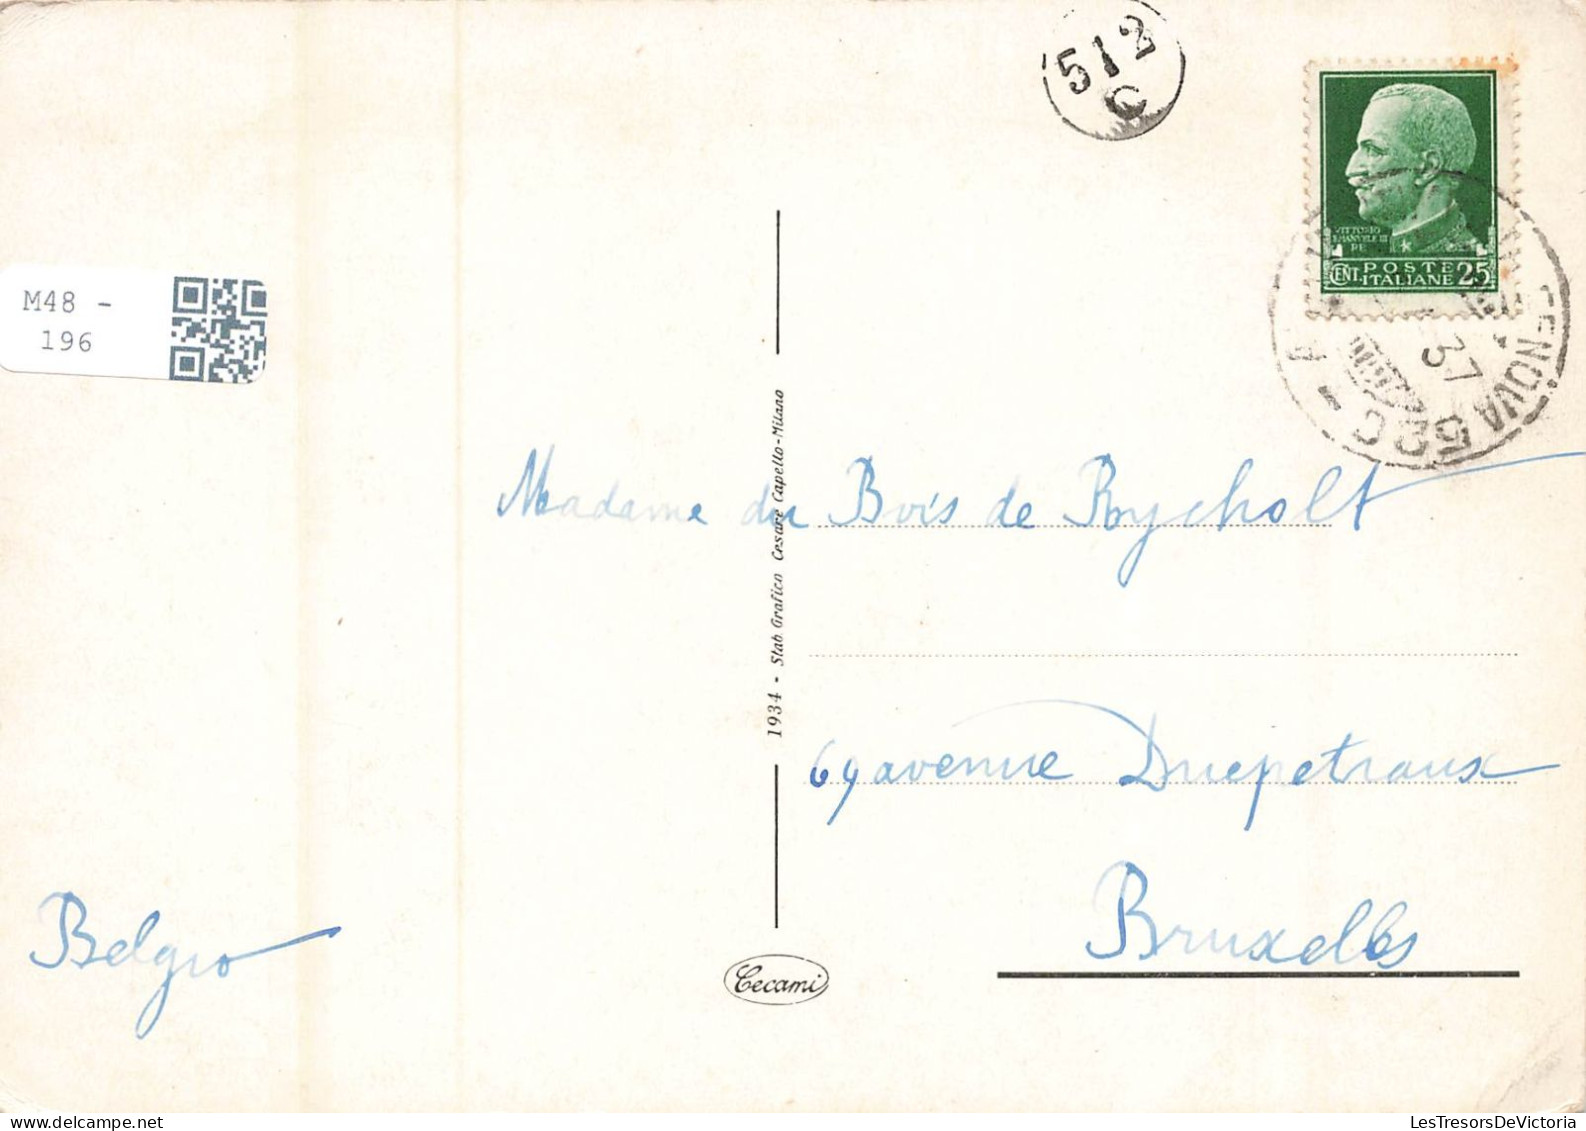 512
C
VITTORIO
EMANVELE III
RE
CENT. POSTE
ITALIANE 25
37
52C
M48 -
196
1934 - Stab. Grafico Cesare Capello - Milano
Madame du Bois de Rycholt
69 avenue Ducpetraux
Bruxelles
Belgio
Cecami
LesTresorsDeVictoria
delcampe.net